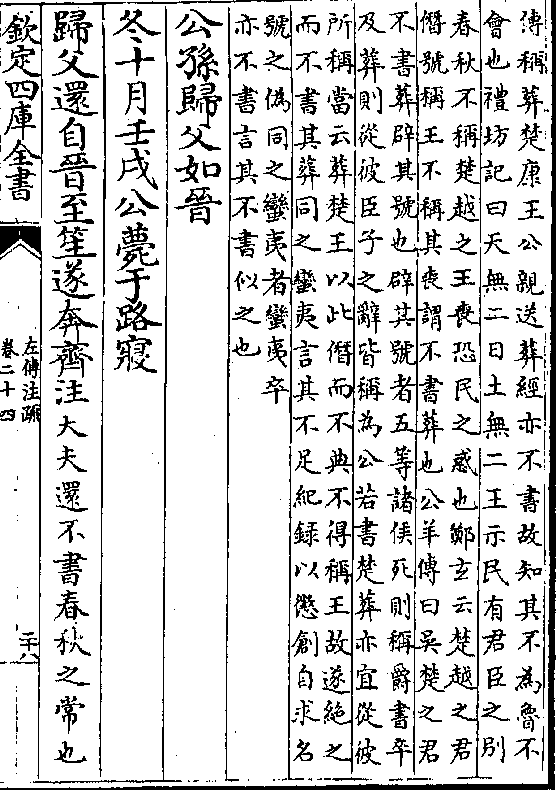 傳稱葬楚康王公親送葬經亦不書故知其不為魯不
會也禮坊記曰天無二日土無二王示民有君臣之別
春秋不稱楚越之王喪恐民之惑也鄭玄云楚越之君
僭號稱王不稱其喪謂不書葬也公羊傳曰吳楚之君
不書葬辟其號也辟其號者五等諸侯死則稱爵書卒
及葬則從彼臣子之辭皆稱為公若書楚葬亦宜從彼
所稱當云葬楚王以此僭而不典不得稱王故遂絕之
而不書其葬同之蠻夷言其不足紀録以懲創自求名
號之偽同之蠻夷者蠻夷卒
亦不書言其不書似之也
公孫歸父如晉
冬十月壬戌公薨于路寢
歸父還自晉至笙遂奔齊注大夫還不書春秋之常也
欽定四庫全書
左傳注疏
卷二十四
二十八